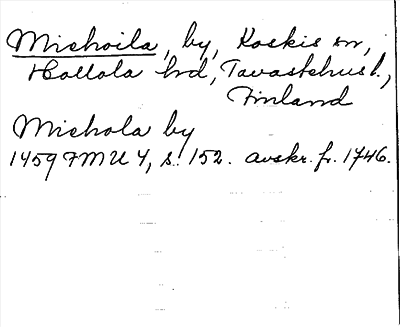 Mishoila, by, Koskis sn,
Hollola hd, Tavastehus l.,
Finland
Mishola by
1459 FMU 4, s. 152. avskr. fr. 1746.